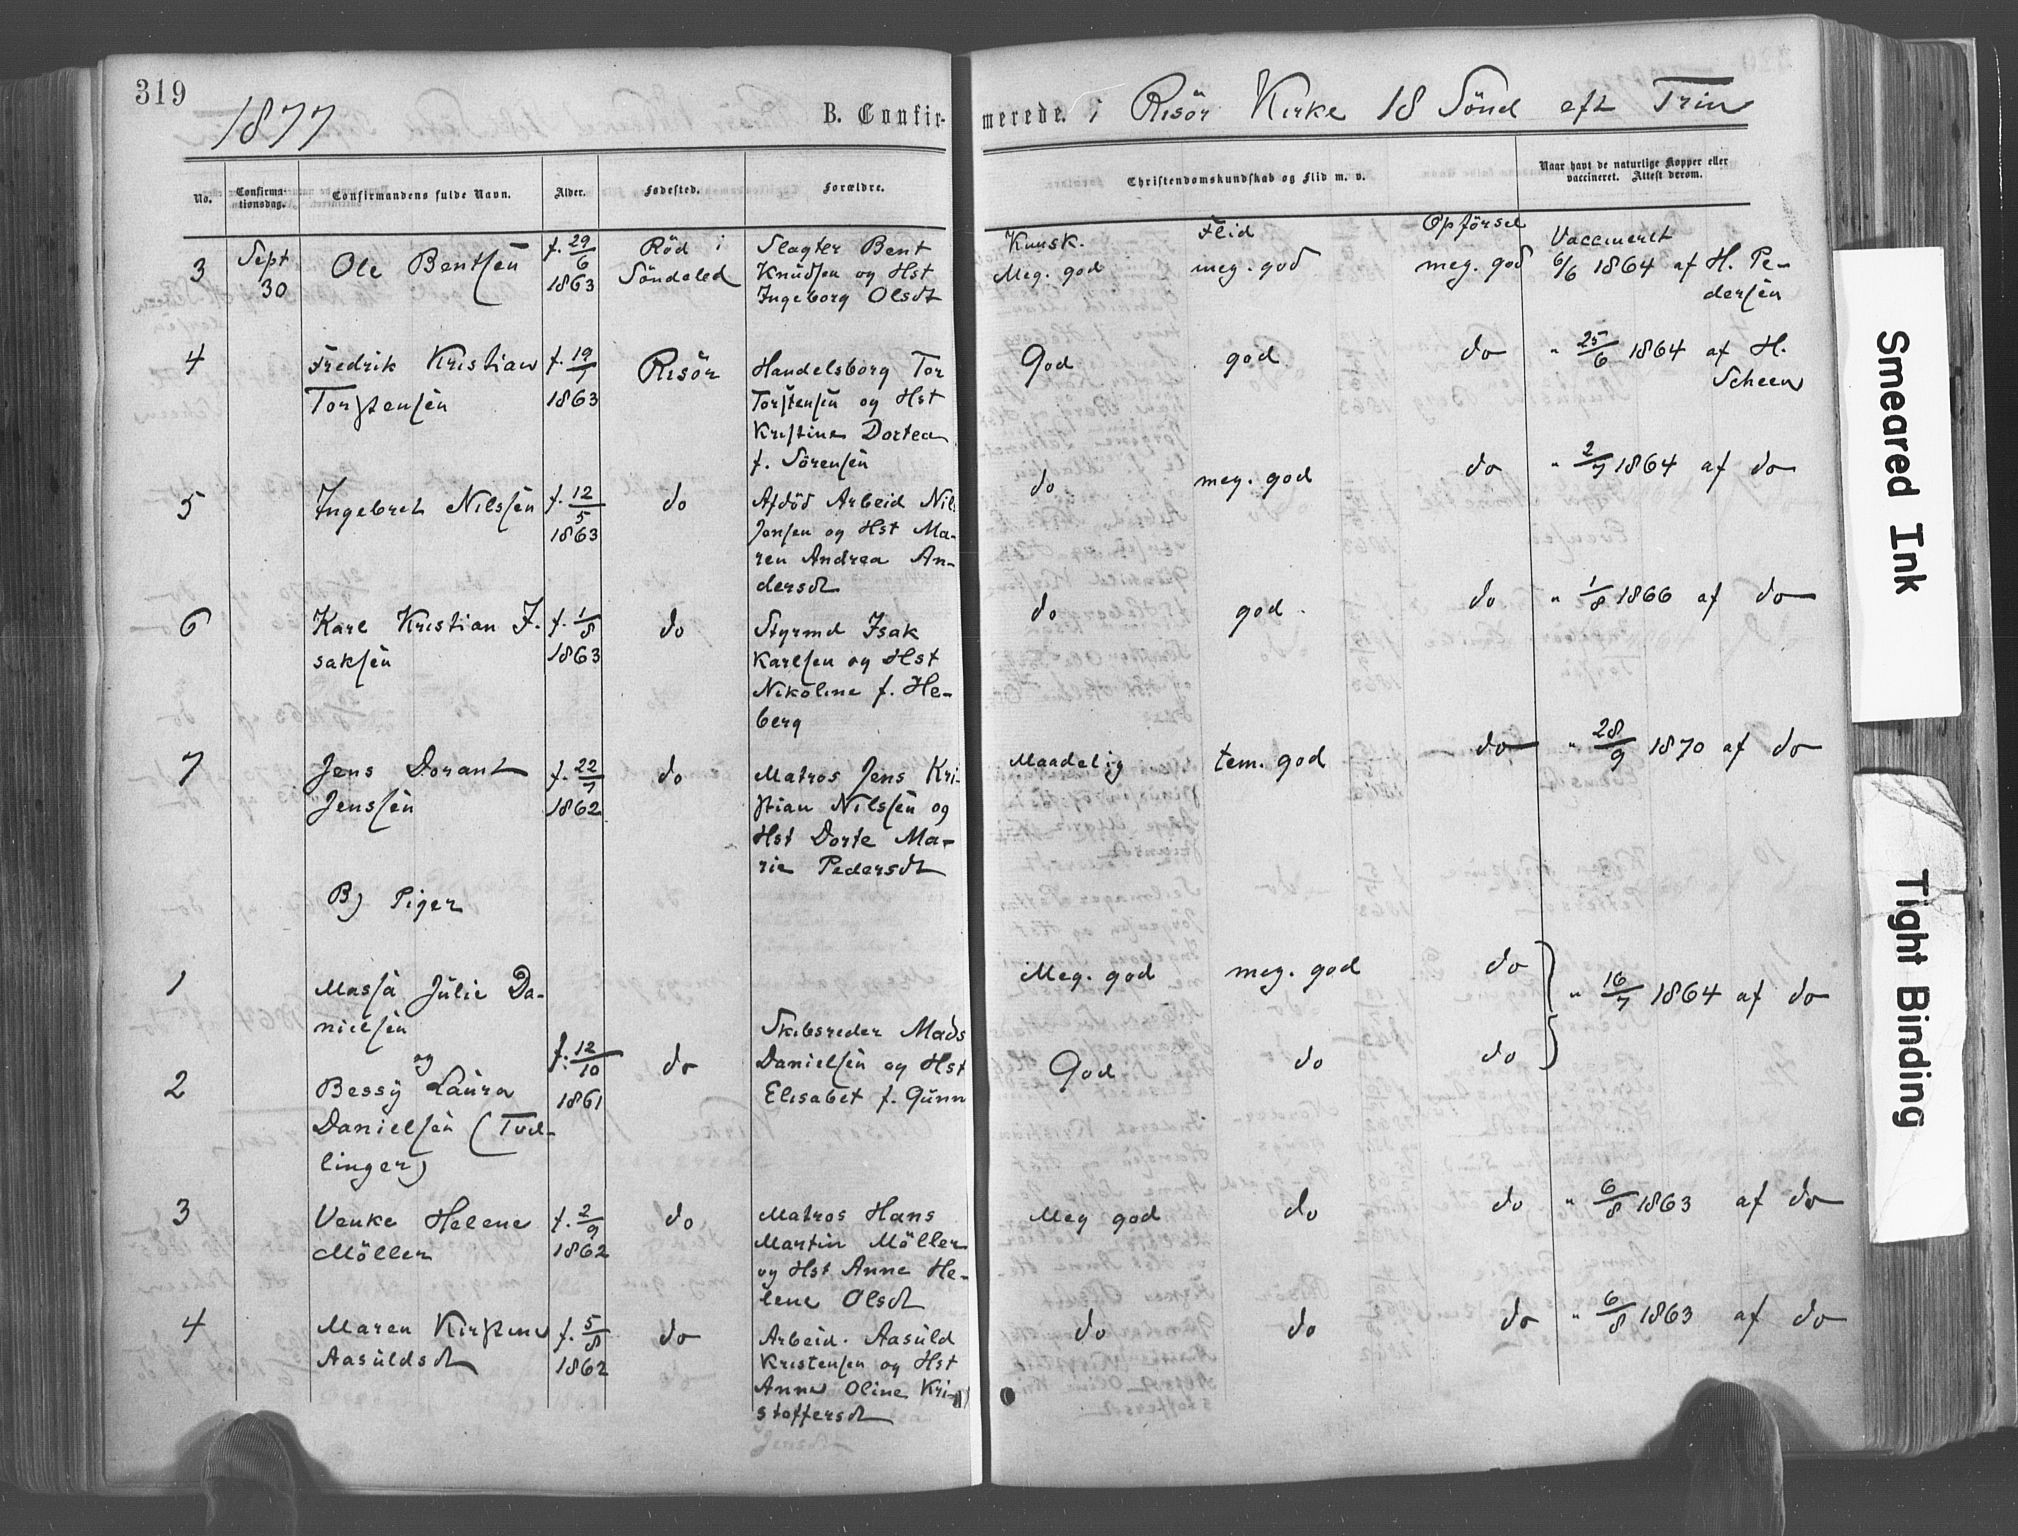 319
1877
B. Confirmerede. i Risör Kirke 18 Sönd eft Trin
No.
Confirmationsdag.
Confirmandens fulde Navn.
Alder.
Fødested.
Forældre.
Christendomskundskab og Flid m. v.
Naar havt de naturlige Kopper eller
vaccineret. Attest derom.
Kunsk. Flid Opförsel Vaccineret
3 Sept Ole Bentsen f. 29/6 Röd i Slagter Bent Meg. god meg. god meg. god 6/6 1864 af H. Pe-
30 1863 Söndeled Knudsen og Hst dersen
Ingeborg Olsdt
4 Fredrik Kristian f. 19/7 Risör Handelsborg Tor God god do " 25/6 1864 af H.
Torstensen 1863 Torstensen og Hst Scheen
Kristine Dortea
f. Sörensen
5 Ingebret Nilssen f. 12/5 do Afdöd Arbeid Nils do meg. god do " 2/7 1864 af do
1863 Jensen og Hst Ma-
ren Andrea An-
dersdt
6 Karl Kristian I- f. 1/8 do Styrmd Isak do god do " 1/8 1866 af do
saksen 1863 Karlsen og Hst
Nikoline f. He-
berg
7 Jens Dorant f. 22/7 do Matros Jens Kri- Maadelig tem. god do " 28/9 1870 af do
Jenssen 1862 stian Nilssen og
Hst Dorte Ma-
rie Pedersdt
B) Piger
1 Massa Julie Da- Meg. god meg. god do " 16/7 1864 af do
nielsen Skibsreder Mads
og f. 12/10 do Danielsen og Hst God do do
2 Bessy Laura 1861 Elisabet f. Gunn
Danielsen (Tvil-
linger)
3 Venke Helene f. 2/9 do Matros Hans Meg god do do " 6/8 1863 af do
Möller 1862 Martin Möller
og Hst Anne He-
lene Olsdt
4 Maren Kirstine f. 5/8 do Arbeid. Aasuld do do do " 6/8 1863 af do
Aasuldsdt 1862 Kristensen og Hst
Anne Oline Kri-
stoffersdt
Smeared Ink
Tight Binding